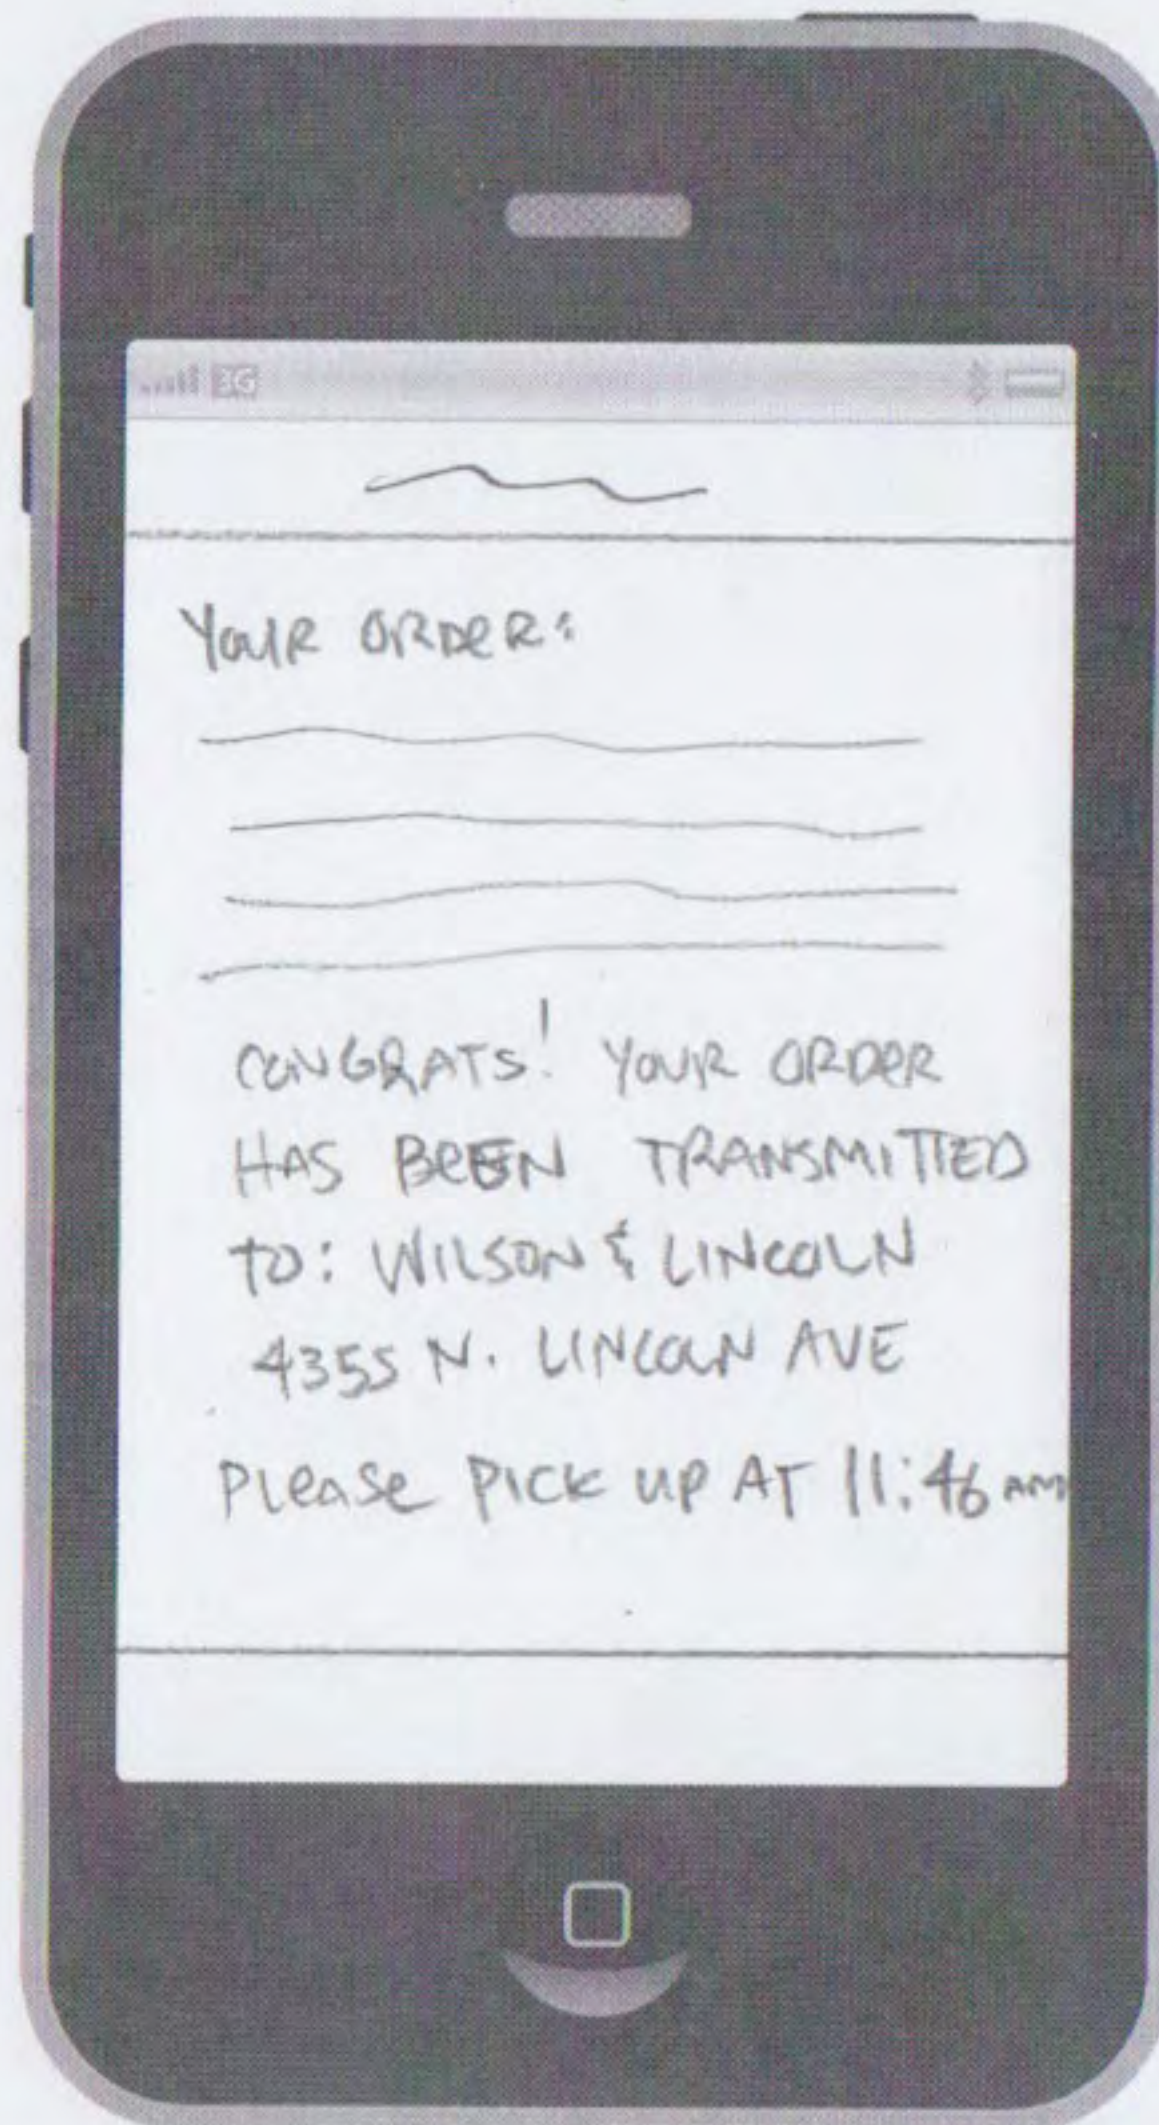 3G
YOUR ORDER:
CONGRATS! YOUR ORDER
HAS BEEN TRANSMITTED
TO: WILSON & LINCOLN
4355 N. LINCOLN AVE
PLEASE PICK UP AT 11:46 AM